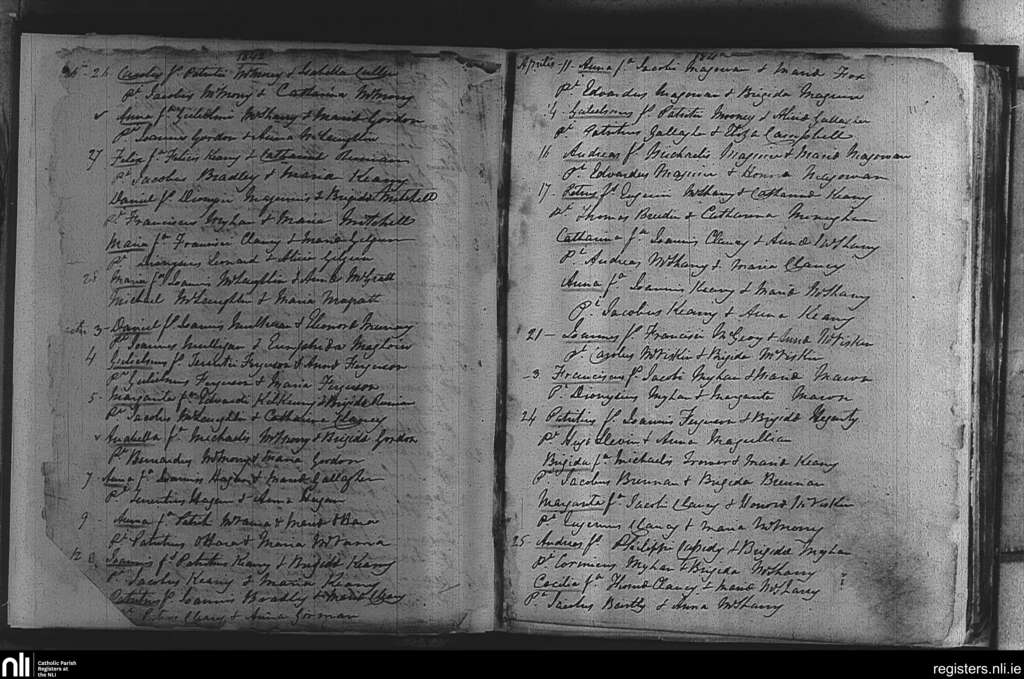 1842
26 Carolus fs Patritii McMorry & Isabella Cullen
Pt Jacobus McMorry & Catharina McMorry
v Anna fa Guilelmi McSharry & Maria Gordon
Pt Joannis Gordon & Anna McLaughlin
27 Felix fs Felicis Keany & Catharina
Pt Jacobus Bradley & Maria Keany
Daniel fs Dionysii Maginnis & Brigida Mitchell
Pt Franciscus Myhan & Maria Mitchell
Maria fa Francisci Clancy & Maria Gilgun
Pt Leonard & Alicia Gilgun
28 Maria fa Joannis McLaughlin & Anna McGratt
Michael McLaughlin & Maria Magratt
3 - Daniel fs Joannis Mulhern & Eleonora Murray
Pt Joannis Mulligan & Magloin
4 Guilelmus fs Terentii Ferguson & Anna Ferguson
Pt Guilelmus Ferguson & Maria Ferguson
5 - Margarita fa Edwardi Kilkenny & Brigida
Pt Jacobus McLaughlin & Catharina Clancy
v Anabella fa Michaelis McMorry & Brigida Gordon
Pt Bernardus McMorry & Maria Gordon
7 - Anna fa Joannis Hagan & Maria Gallagher
Pt Terentius Hagan & Anna Hagan
9 - Anna fa Patrit & Maria O Hara
Pt Patritius O Hara & Maria
12 Joannis fs Patritius Keany & Brigida Keany
Pt Jacobus Keany & Maria Keany
Patritus fs Joannis Bradly & Maria Clery
Petrus Cleary & Anna Gorman
Aprilis - 11 - Anna fa Jacobi Magowan & Maria Fox
Pt Edvardus Magowan & Brigida Maguire
4 - Guilelmus fs Patritii Mooney & Alicia Gallagher
Pt Patritius Gallaghr & Eliza Campbell
16 Andreas fs Michaelis Maguire & Maria Magowan
Pt Edvardus Maguire & Honora Magowan
17 Petrus fs Eugenii McSharry & Catharina Keany
Pt Thomas & Catharina Monaghan
Catharina fa Joannis Clancy & Anna McSharry
Pt Andreas McSharry & Maria Clancy
Anna fa Joannis Keany & Maria McSharry
Pt Jacobus Keany & Anna Keany
21 - Joannes fs Francisci McGeoy & Anna McKisker
Pt Carolus McKisker & Brigida McKisker
3 Franciscus fs Jacobi Myhan & Maria Maron
Pt Dionysius Myhan & Margarita Maron
24 Patritius fs Joannis Ferguson & Brigida Hegarty
Pt Slevin & Anna
Brigida fa Michaelis & Maria Keany
Pt Jacobus Brennan & Brigida Brennan
Margarita fa Jacobi Clancy & Honora McKisker
Pt Eugenius Clancy & Maria McMorry
25 - Andreas fs Philippi Cassidy & Brigida Myhan
Pt Cormicus Myhan & Brigida McSharry
Cecilia fa Thoma Clancy & Maria McSharry
Pt Jacobus Bartly & Anna McSharry
nli Catholic Parish
Registers at
the NLI
registers.nli.ie